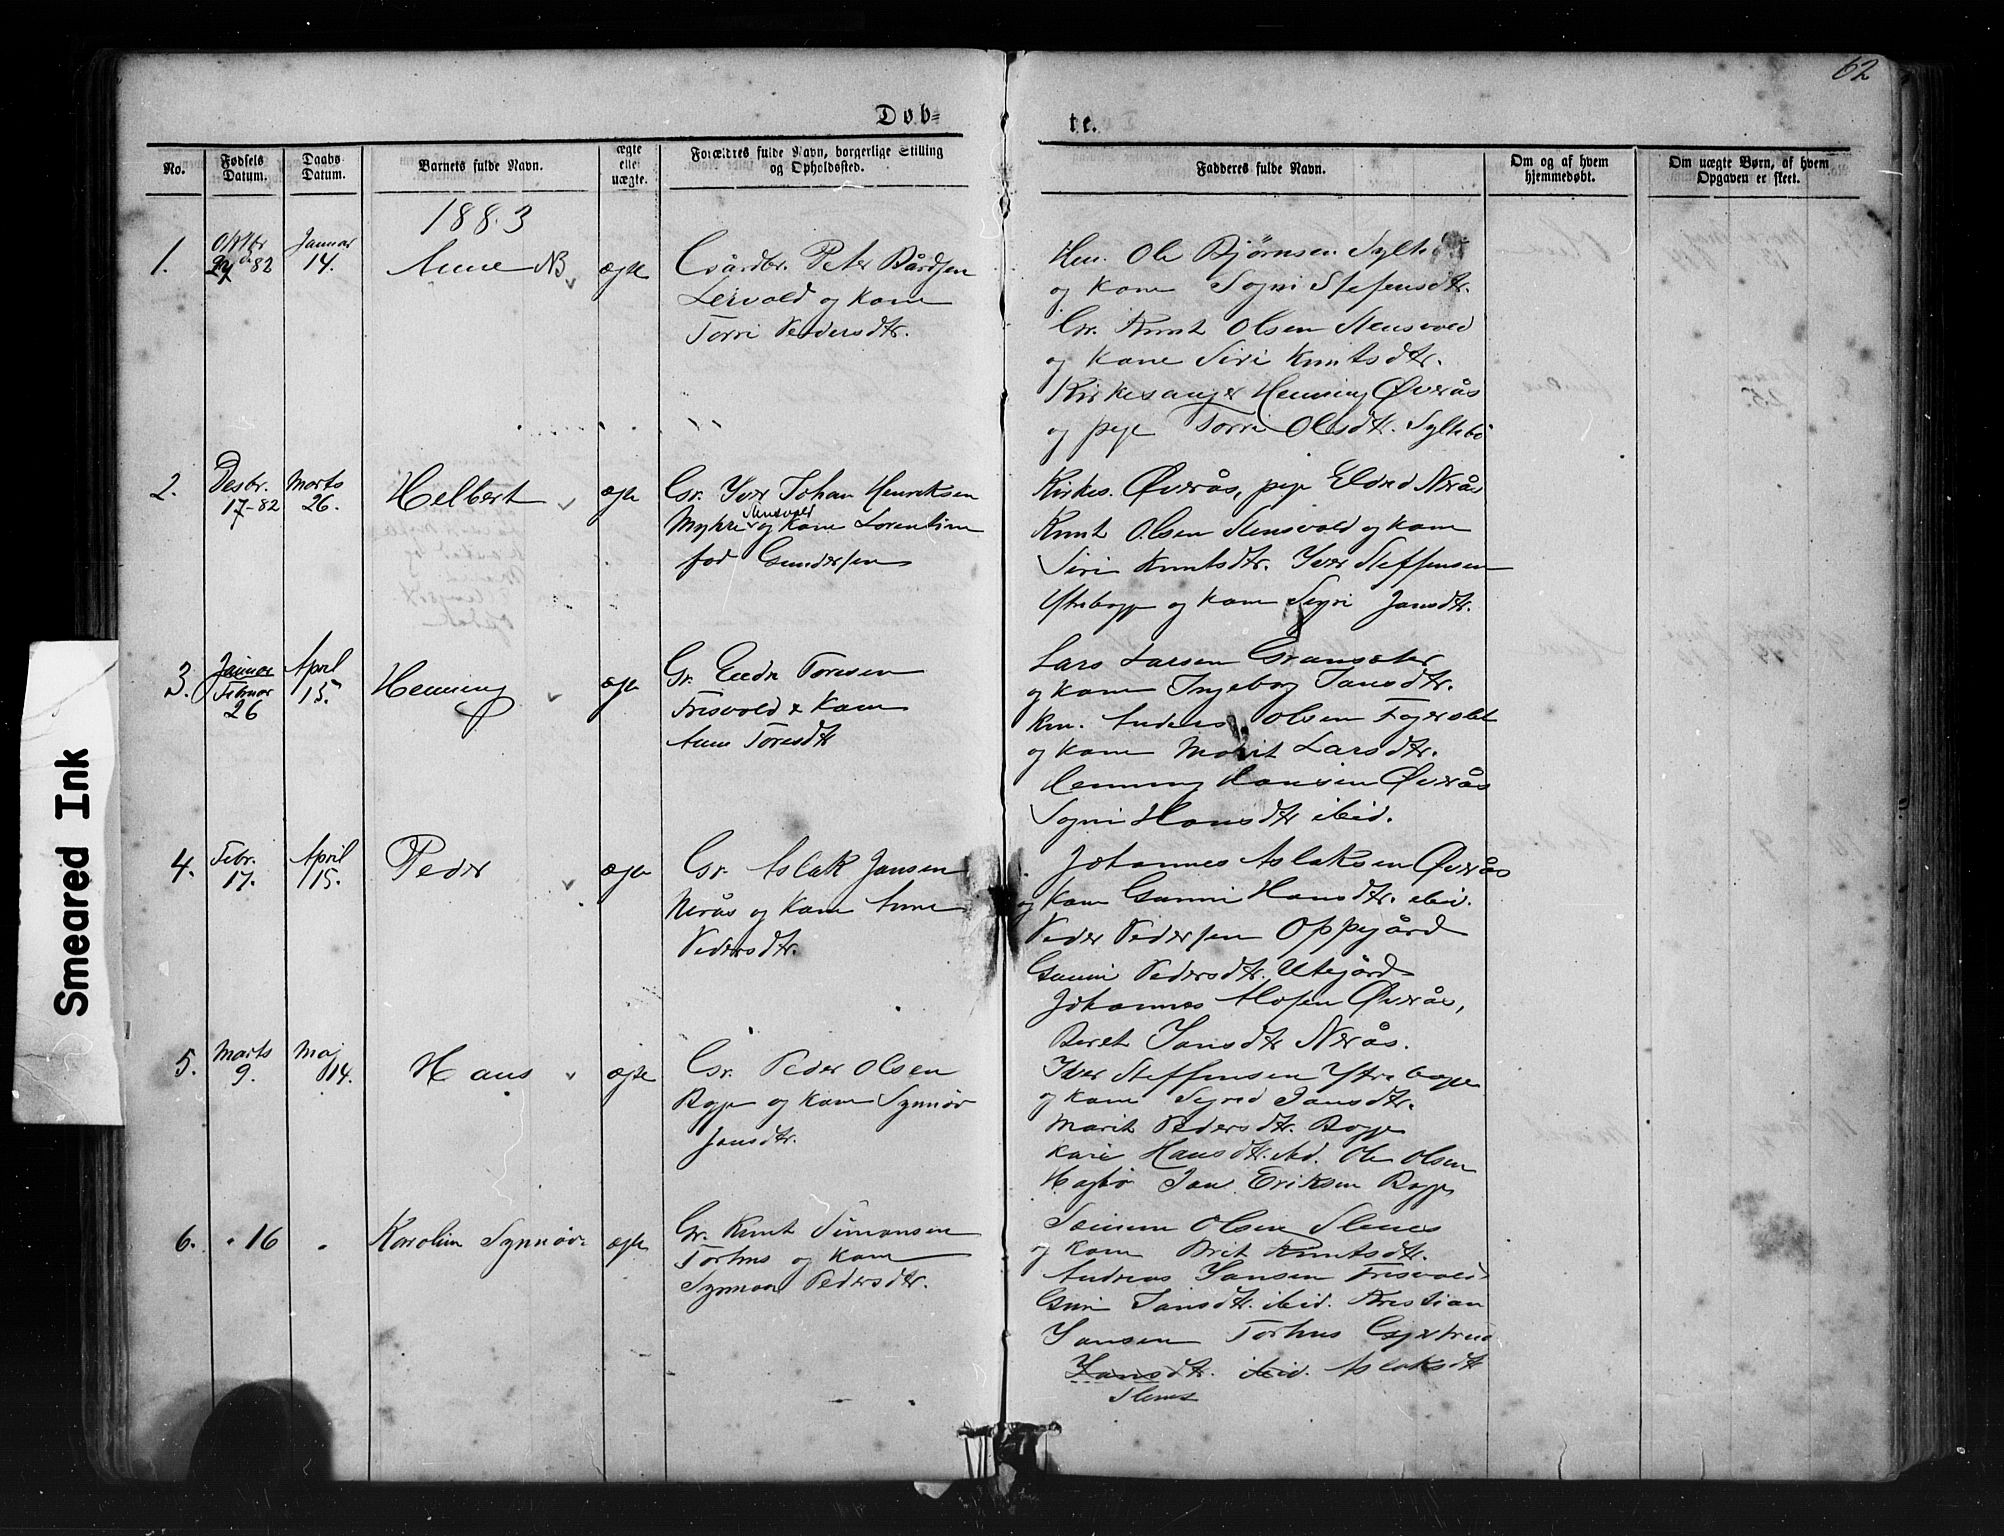 62
Døb=
te.
No.
Fødsels Datum.
Daabs Datum.
Barnets fulde Navn.
ægte eller uægte.
Forældres fulde Navn, borgerlige Stilling og Opholdssted.
Fadderes fulde Navn.
Om og af hvem hjemmedøbt.
Om uægte Børn, af hvem Opgaven er skeet.
1883
1. Oktbr 82 Januar 14. Anne NB ægte
Gårdbr. Peter Bårdsen
Leivold og Kone
Torri Pedersdtr.
Ole Bjørnsen
og Kone Sogni Stefensdtr.
Gr. Knut Olsen Stensvold
og Kone Siri Knutsdtr.
Kirkesanger Henning Øverås
og pige Torri Olsdtr. Syltebø
2. Desbr. 17-82 Marts 26. Helbert ægte
Gr. Iver Johan Henriksen
Myhre Stensvold og Kone
fød Gundersen
Kirkes. Øverås, pige Nerås
Knut Olsen Stensvold og Kone
Siri Knutsdtr. Iver Steffensen
og Kone Jansdtr.
3. Januar Februar 26 April 15. Henning ægte
Gr. Toresen
Frisvold & Kone
Toresdtr
Lars Larsen Gransæter
og Kone Ingeborg Jansdtr.
Anders Olsen
og Kone Marit Larsdtr.
Henning Hansen Øverås
Sogni Hansdtr ibid.
4. Febr. 17. April 15. Peder ægte
Gr. Aslak Jansen
Nerås og Kone Anne
Pedersdtr.
Johannes Aslaksen Øverås
og Kone Gunni Hansdtr. ibid.
Peder Pedersen Oppigård
Pedersdtr. Utigård
Johannes Øverås,
Beret Jansdtr Nerås.
5. Marts 9. Maj 14. Hans ægte
Gr. Peder Olsen
Bogge og Kone Synnøv
Jansdtr.
Iver Steffensen Ytre bogge
og Kone Jansdtr.
Marit Pedersdtr. Bogge
Kari Hansdtr. ibid. Ole Olsen
Jan Eriksen Bogge
6. " 16 " Karoline Synnøv. ægte
Gr. Knut Simonsen
Torhus og Kone
Pedersdtr.
Olsen Slenes
og Kone Brit Knutsdtr.
Andreas Jansen Frisvold
Guri Jansdtr. ibid. Kristian
Jansen Torhus Gjertrud
Jansdtr. ibid. Aslaksdtr
Slenes
Smeared Ink